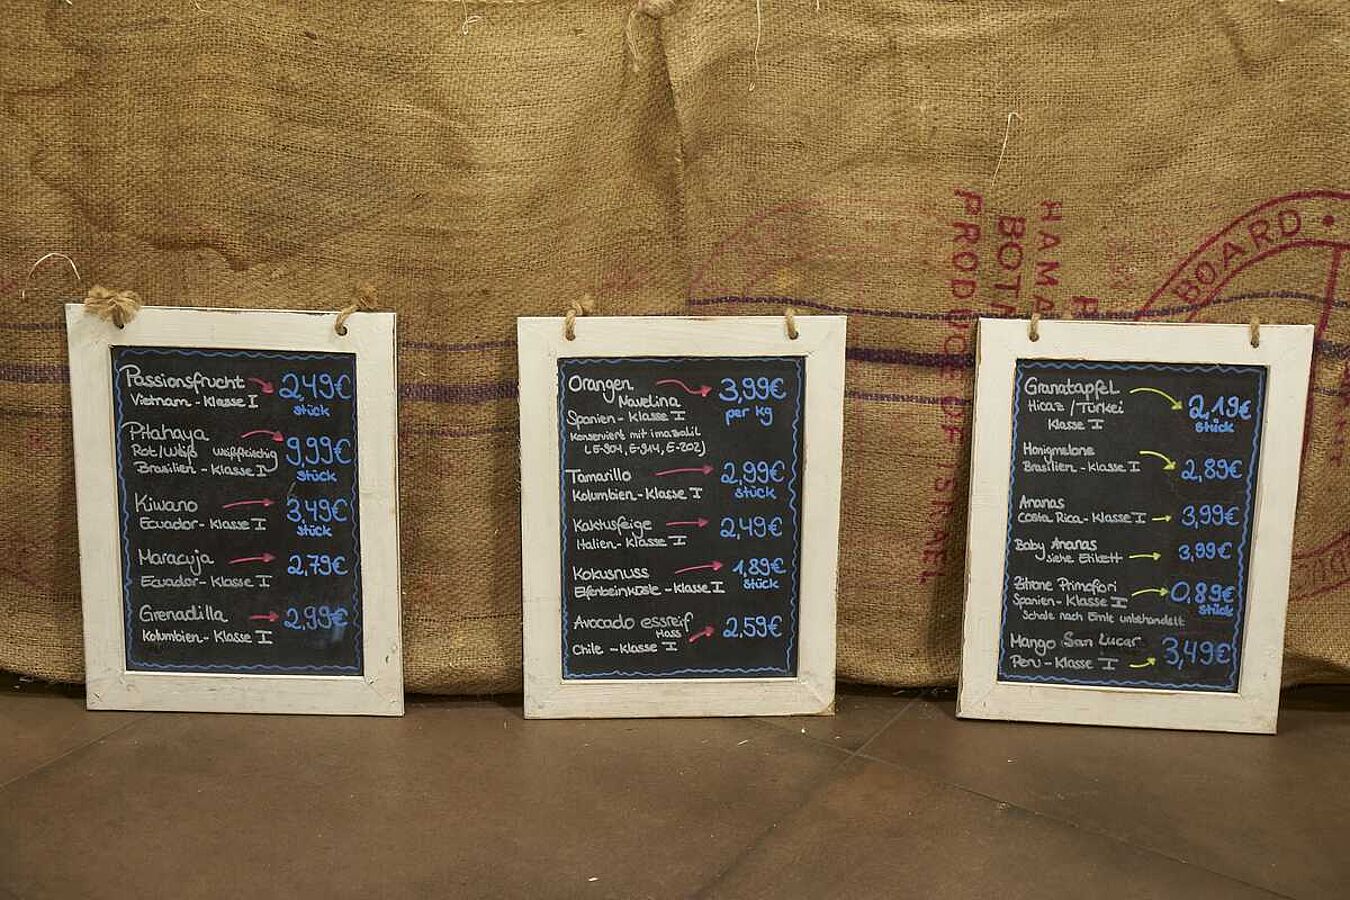 Passionsfrucht 2,49€
Vietnam - Klasse I stück
Pitahaya
Rot/Weiß weißfleischig 9,99€
Brasilien - Klasse I stück
Kiwano 3,49€
Ecuador - Klasse I stück
Maracuja 2,79€
Ecuador - Klasse I
Grenadilla 2,99€
Kolumbien - Klasse I
Orangen 3,99€
Navelina per kg
Spanien - Klasse I
Konserviert mit imazalil
(E-904, E-914, E-202)
Tamarillo 2,99€
Kolumbien - Klasse I stück
Kaktusfeige 2,49€
Italien - Klasse I
Kokusnuss 1,89€
Elfenbeinküste - Klasse I stück
Avocado essreif 2,59€
Hass
Chile - Klasse I
Granatapfel 2,19€
Hicaz / Türkei stück
Klasse I
Honigmelone 2,89€
Brasilien - Klasse I
Ananas 3,99€
Costa Rica - Klasse I
Baby Ananas 3,99€
siehe Etikett
Zitrone Primofiori 0,89€
Spanien - Klasse I stück
Schale nach Ernte unbehandelt
Mango San Lucar 3,49€
Peru - Klasse I
BOARD
PRODUCE OF ISRAEL